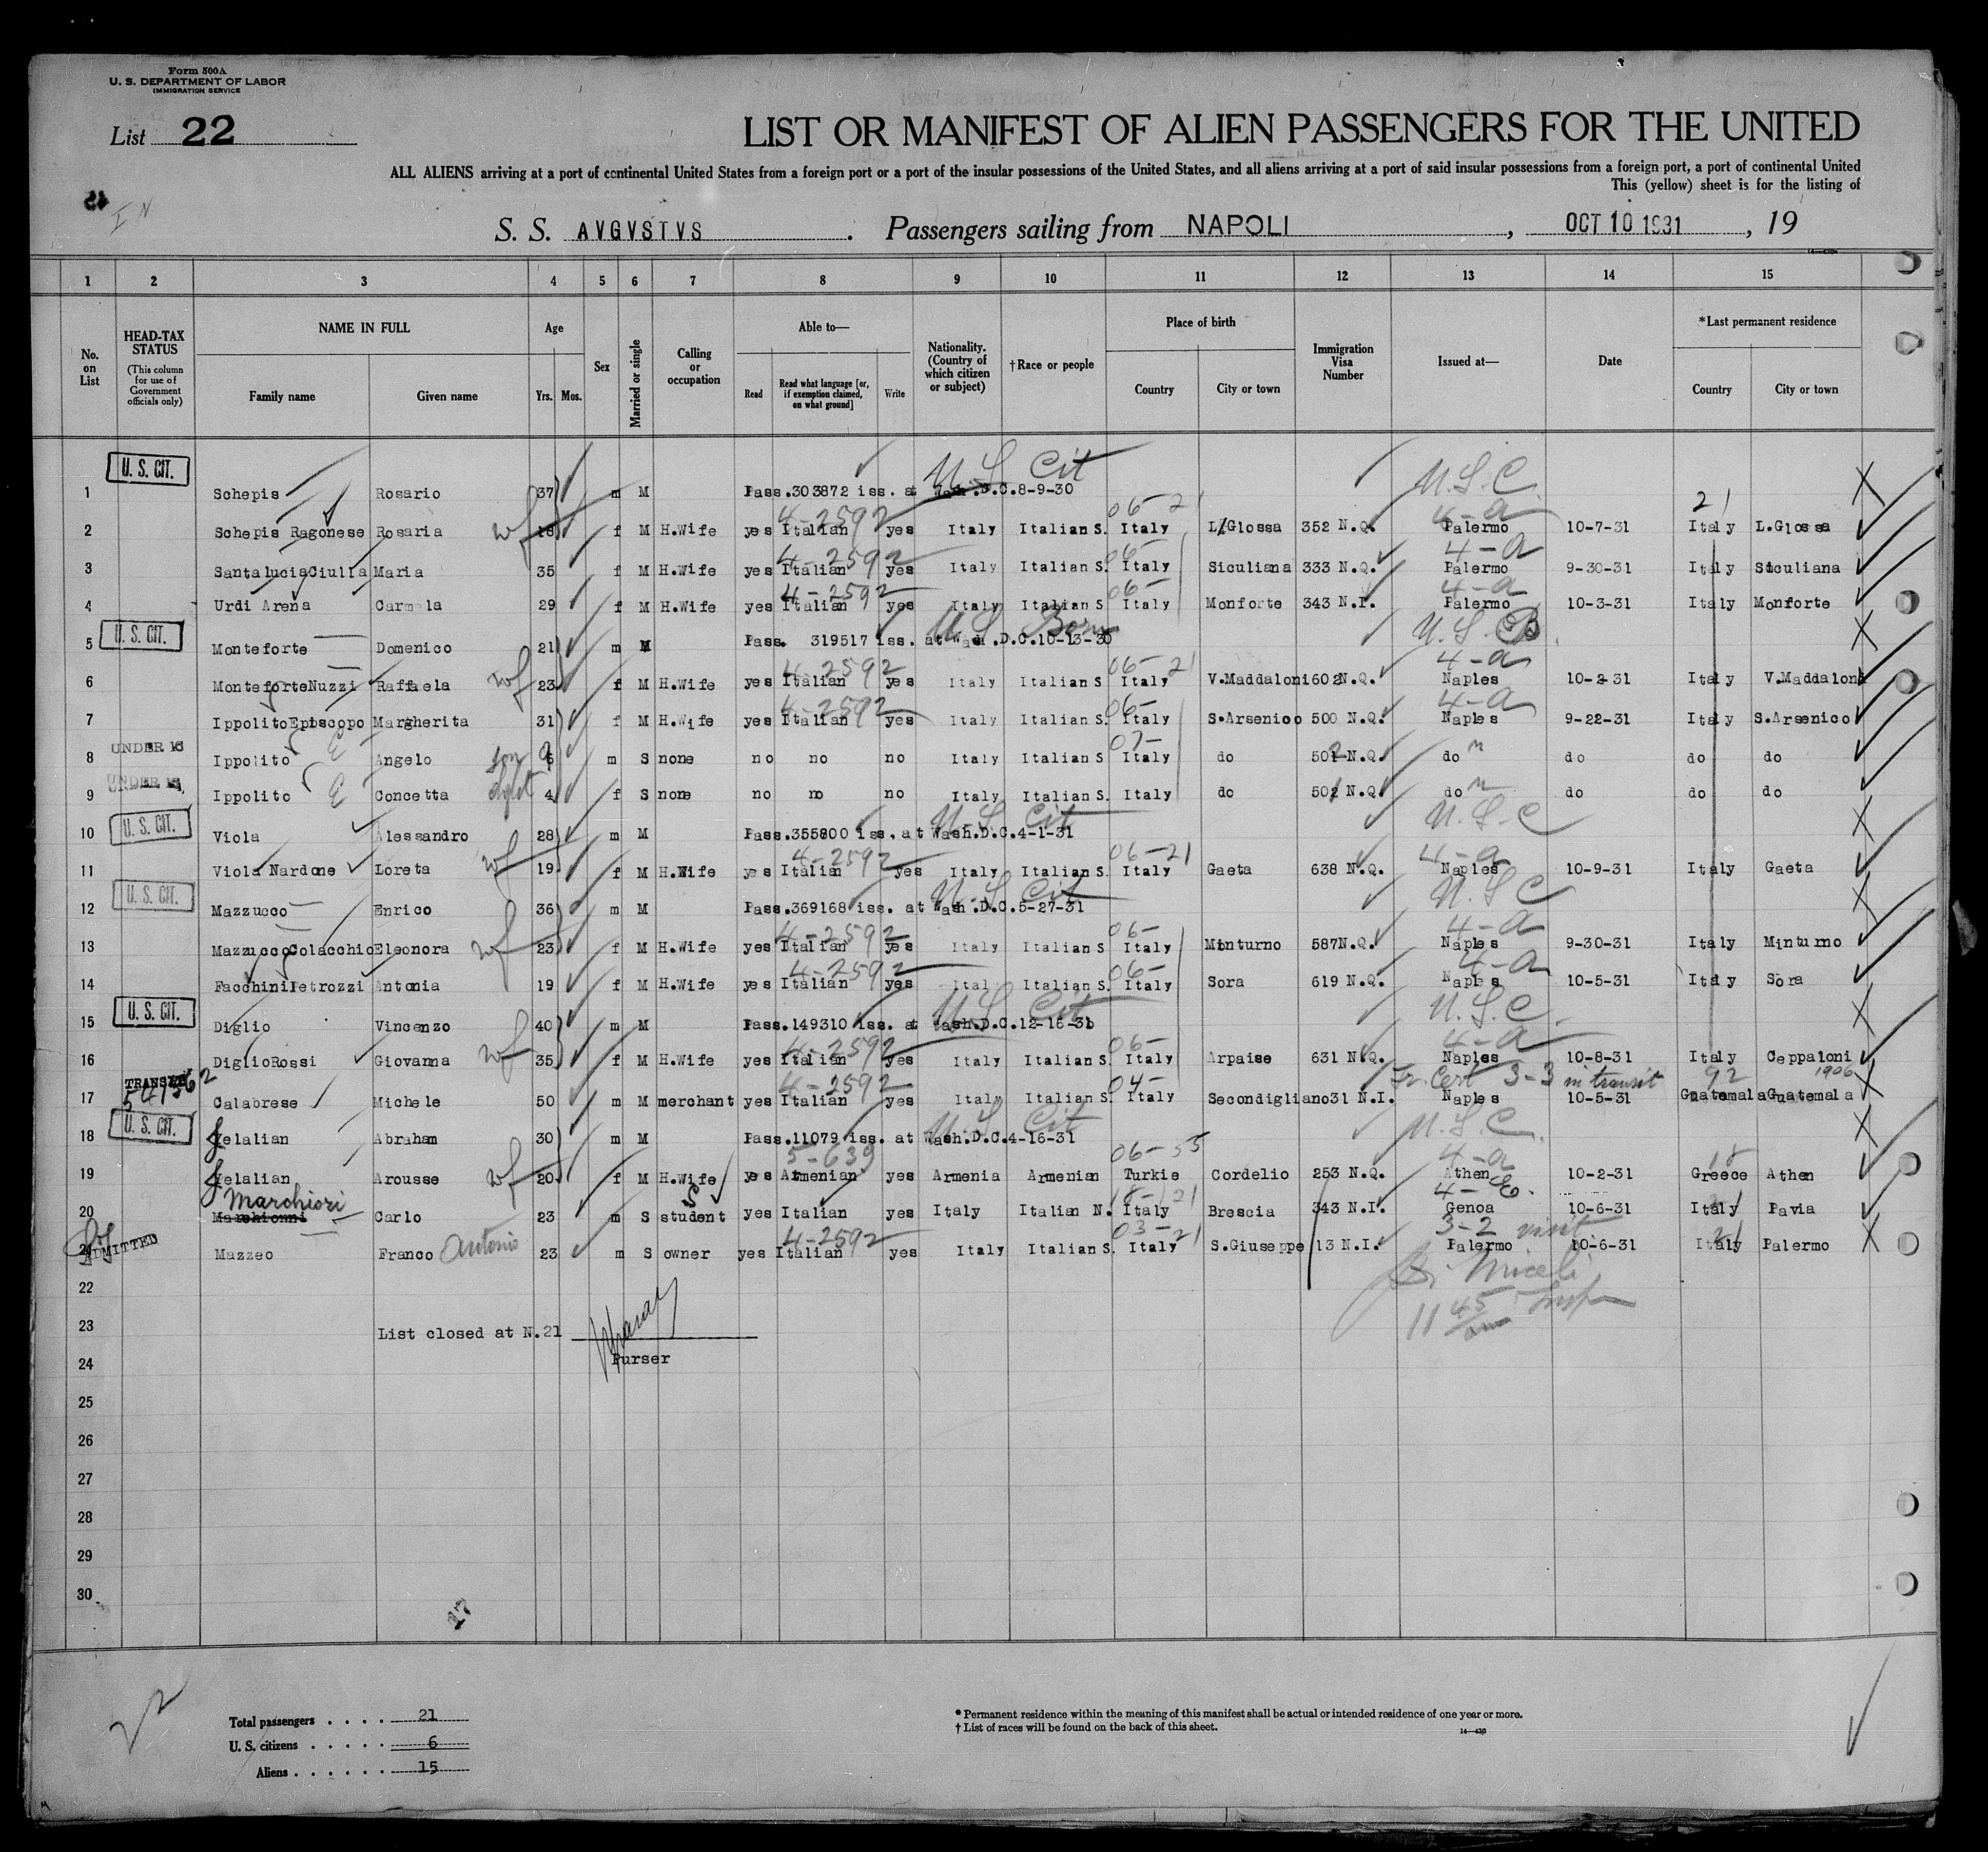 Form 500A
U. S. DEPARTMENT OF LABOR
IMMIGRATION SERVICE
List 22
LIST OR MANIFEST OF ALIEN PASSENGERS FOR THE UNITED
ALL ALIENS arriving at a port of continental United States from a foreign port or a port of the insular possessions of the United States, and all aliens arriving at a port of said insular possessions from a foreign port, a port of continental United
This (yellow) sheet is for the listing of
S. S. AVGVSTVS. Passengers sailing from NAPOLI, OCT 10 1931, 19
1 2 3 4 5 6 7 8 9 10 11 12 13 14 15
No. on List
HEAD-TAX STATUS (This column for use of Government officials only)
NAME IN FULL Family name Given name
Age Yrs. Mos.
Sex
Married or single
Calling or occupation
Able to— Read Read what language [or, if exemption claimed, on what ground] Write
Nationality. (Country of which citizen or subject)
†Race or people
Place of birth Country City or town
Immigration Visa Number
Issued at—
Date
*Last permanent residence Country City or town
U. S. CIT. U.S. Cit U.S.C.
1 Schepis Rosario 37 m M Pass.303872 iss. at Wash.D.C.8-9-30
4-2592 06-21 4-a 21
2 Schepis Ragonese Rosaria wf 18 f M H.Wife yes Italian yes Italy Italian S. Italy L.Glossa 352 N.Q. Palermo 10-7-31 Italy L.Glossa
4-2592 06- 4-a
3 SantaluciaCiulla Maria 35 f M H.Wife yes Italian yes Italy Italian S. Italy Siculiana 333 N.Q. Palermo 9-30-31 Italy Siculiana
4-2592 06- 4-a
4 Urdi Arena Carmela 29 f M H.Wife yes Italian yes Italy Italian S Italy Monforte 343 N.I. Palermo 10-3-31 Italy Monforte
U. S. CIT. U.S. Born U.S.B
5 Monteforte Domenico 21 m M Pass. 319517 iss. at Wash.D.C.10-13-30
4-2592 06-21 4-a
6 MonteforteNuzzi Raffaela wf 23 f M H.Wife yes Italian yes Italy Italian S Italy V.Maddaloni 602 N.Q. Naples 10-2-31 Italy V.Maddaloni
4-2592 06- 4-a
7 IppolitoEpiscopo Margherita 31 f M H.Wife yes Italian yes Italy Italian S. Italy S.Arsenico 500 N.Q. Naples 9-22-31 Italy S.Arsenico
UNDER 16 07-
8 Ippolito Angelo son m S none no no no Italy Italian S Italy do N.Q. do do do do
UNDER 16
9 Ippolito Concetta 4 f S none no no no Italy Italian S. Italy do N.Q. do do do do
U. S. CIT. U.S. Cit U.S.C
10 Viola Alessandro 28 m M Pass.355800 iss. at Wash.D.C.4-1-31
4-2592 06-21 4-a
11 Viola Nardone Loreta wf 19 f M H.Wife yes Italian yes Italy Italian S. Italy Gaeta 638 N.Q. Naples 10-9-31 Italy Gaeta
U. S. CIT. U.S. Cit U.S.C
12 Mazzucco Enrico 36 m M Pass.369168 iss. at Wash.D.C.5-27-31
4-2592 06- 4-a
13 MazzuccoColacchio Eleonora wf 23 f M H.Wife yes Italian yes Italy Italian S Italy Minturno 587N.Q. Naples 9-30-31 Italy Minturno
4-2592 06- 4-a
14 FacchiniPetrozzi Antonia 19 f M H.Wife yes Italian yes Ital Italian S. Italy Sora 619 N.Q. Naples 10-5-31 Italy Sora
U. S. CIT. U.S. Cit U.S.C.
15 Diglio Vincenzo 40 m M Pass.149310 iss. at Wash.D.C.
4-2592 06- 4-a
16 DiglioRossi Giovanna wf 35 f M H.Wife yes Italian yes Italy Italian S. Italy Arpaise 631 N.Q. Naples 10-8-31 Italy Ceppaloni
TRANSIT 4-2592 04- Cert 3-3 in transit 92 1906
17 Calabrese Michele 50 m M merchant yes Italian yes Italy Italian S. Italy Secondigliano 31 N.I. Naples 10-5-31 Guatemala Guatemala
U. S. CIT. U.S. Cit U.S.C.
18 Jelalian Abraham 30 m M Pass.11079 iss. at Wash.D.C.4-16-31
5-639 06-55 4-a 18
19 Jelalian Arousse wf 20 f M H.Wife yes Armenian yes Armenia Armenian Turkie Cordelio 253 N.Q. Athen 10-2-31 Greece Athen
Marchiori
20 Marchionni Carlo 23 m S student yes Italian yes Italy Italian N. Italy Brescia 343 N.I. Genoa 10-6-31 Italy Pavia
ADMITTED 4-2592 03-21 3-2 visit 21
21 Mazzeo Franco Antonio 23 m S owner yes Italian yes Italy Italian S. Italy S.Giuseppe 13 N.I. Palermo 10-6-31 Italy Palermo
22
23 List closed at N.21
11 45
24 Purser
25
26
27
28
29
30
Total passengers . . . . 21
U. S. citizens . . . . . 6
Aliens . . . . . . 15
* Permanent residence within the meaning of this manifest shall be actual or intended residence of one year or more.
† List of races will be found on the back of this sheet.